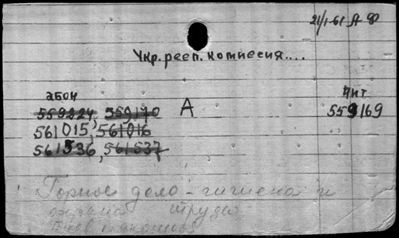 21/I-61 А-90
Укр. респ. комиссия....
абон чит
559224, 559170 А 559169
561015, 561016
561536, 561537
Горное дело - гигиена и
труда